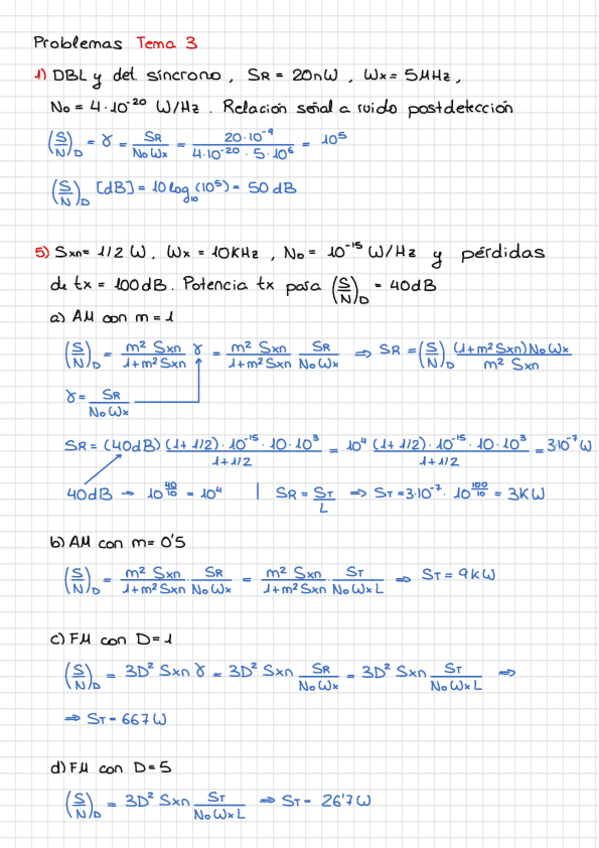 Problemas Tema 3
1) DBL y det. síncrono, SR = 20nW, Wx = 5MHz,
No = 4·10⁻²⁰ W/Hz. Relación señal a ruido postdetección
(S/N)D = γ = SR/NoWx = 20·10⁻⁹/4·10⁻²⁰·5·10⁶ = 10⁵
(S/N)D [dB] = 10 log₁₀(10⁵) = 50 dB
5) Sxn = 1/2 W, Wx = 10KHz, No = 10⁻¹⁵ W/Hz y pérdidas
de tx = 100dB. Potencia tx para (S/N)D = 40dB
a) AM con m = 1
(S/N)D = m² Sxn/1+m² Sxn γ = m² Sxn/1+m² Sxn SR/NoWx ⇒ SR = (S/N)D (1+m² Sxn)NoWx/m² Sxn
γ = SR/NoWx
SR = (40dB) (1+1/2)·10⁻¹⁵·10·10³/1+1/2 = 10⁴ (1+1/2)·10⁻¹⁵·10·10³/1+1/2 = 3·10⁻⁷ W
40dB → 10^(40/10) = 10⁴ | SR = ST/L ⇒ ST = 3·10⁻⁷·10^(100/10) = 3KW
b) AM con m = 0'5
(S/N)D = m² Sxn/1+m² Sxn · SR/NoWx = m² Sxn/1+m² Sxn · ST/NoWxL ⇒ ST = 9kW
c) FM con D = 1
(S/N)D = 3D² Sxn γ = 3D² Sxn SR/NoWx = 3D² Sxn ST/NoWxL ⇒
⇒ ST = 667W
d) FM con D = 5
(S/N)D = 3D² Sxn ST/NoWxL ⇒ ST = 26'7W